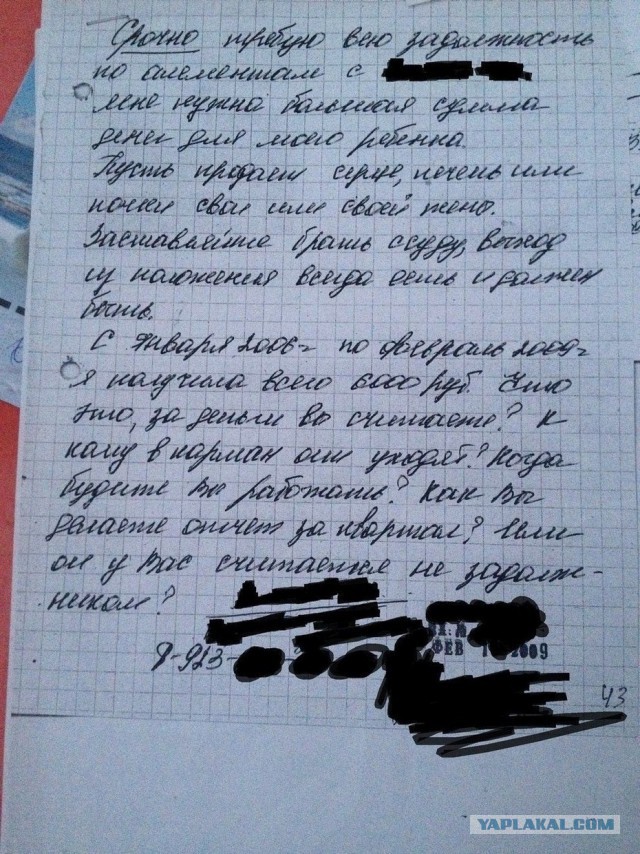 Срочно требую всю задолжность
по алементам с
мне нужна большая сумма
денег для моего ребенка.
Пусть продает серце, печень или
почки свои или своей жены.
Заставляйте брать ссуду, выход
из положения всегда есть и должен
быть.
С Января 2006г по февраль 2009г
я получила всего 6000 руб. Что
это, за деньги вы считаете? К
кому в карман они уходят? Когда
будите Вы работать? Как Вы
делаете отчет за квартал? Или
он у Вас считается не задолж-
ником?
8-923-
ВХ. №
ФЕВ 2009
43
YAPLAKAL.COM